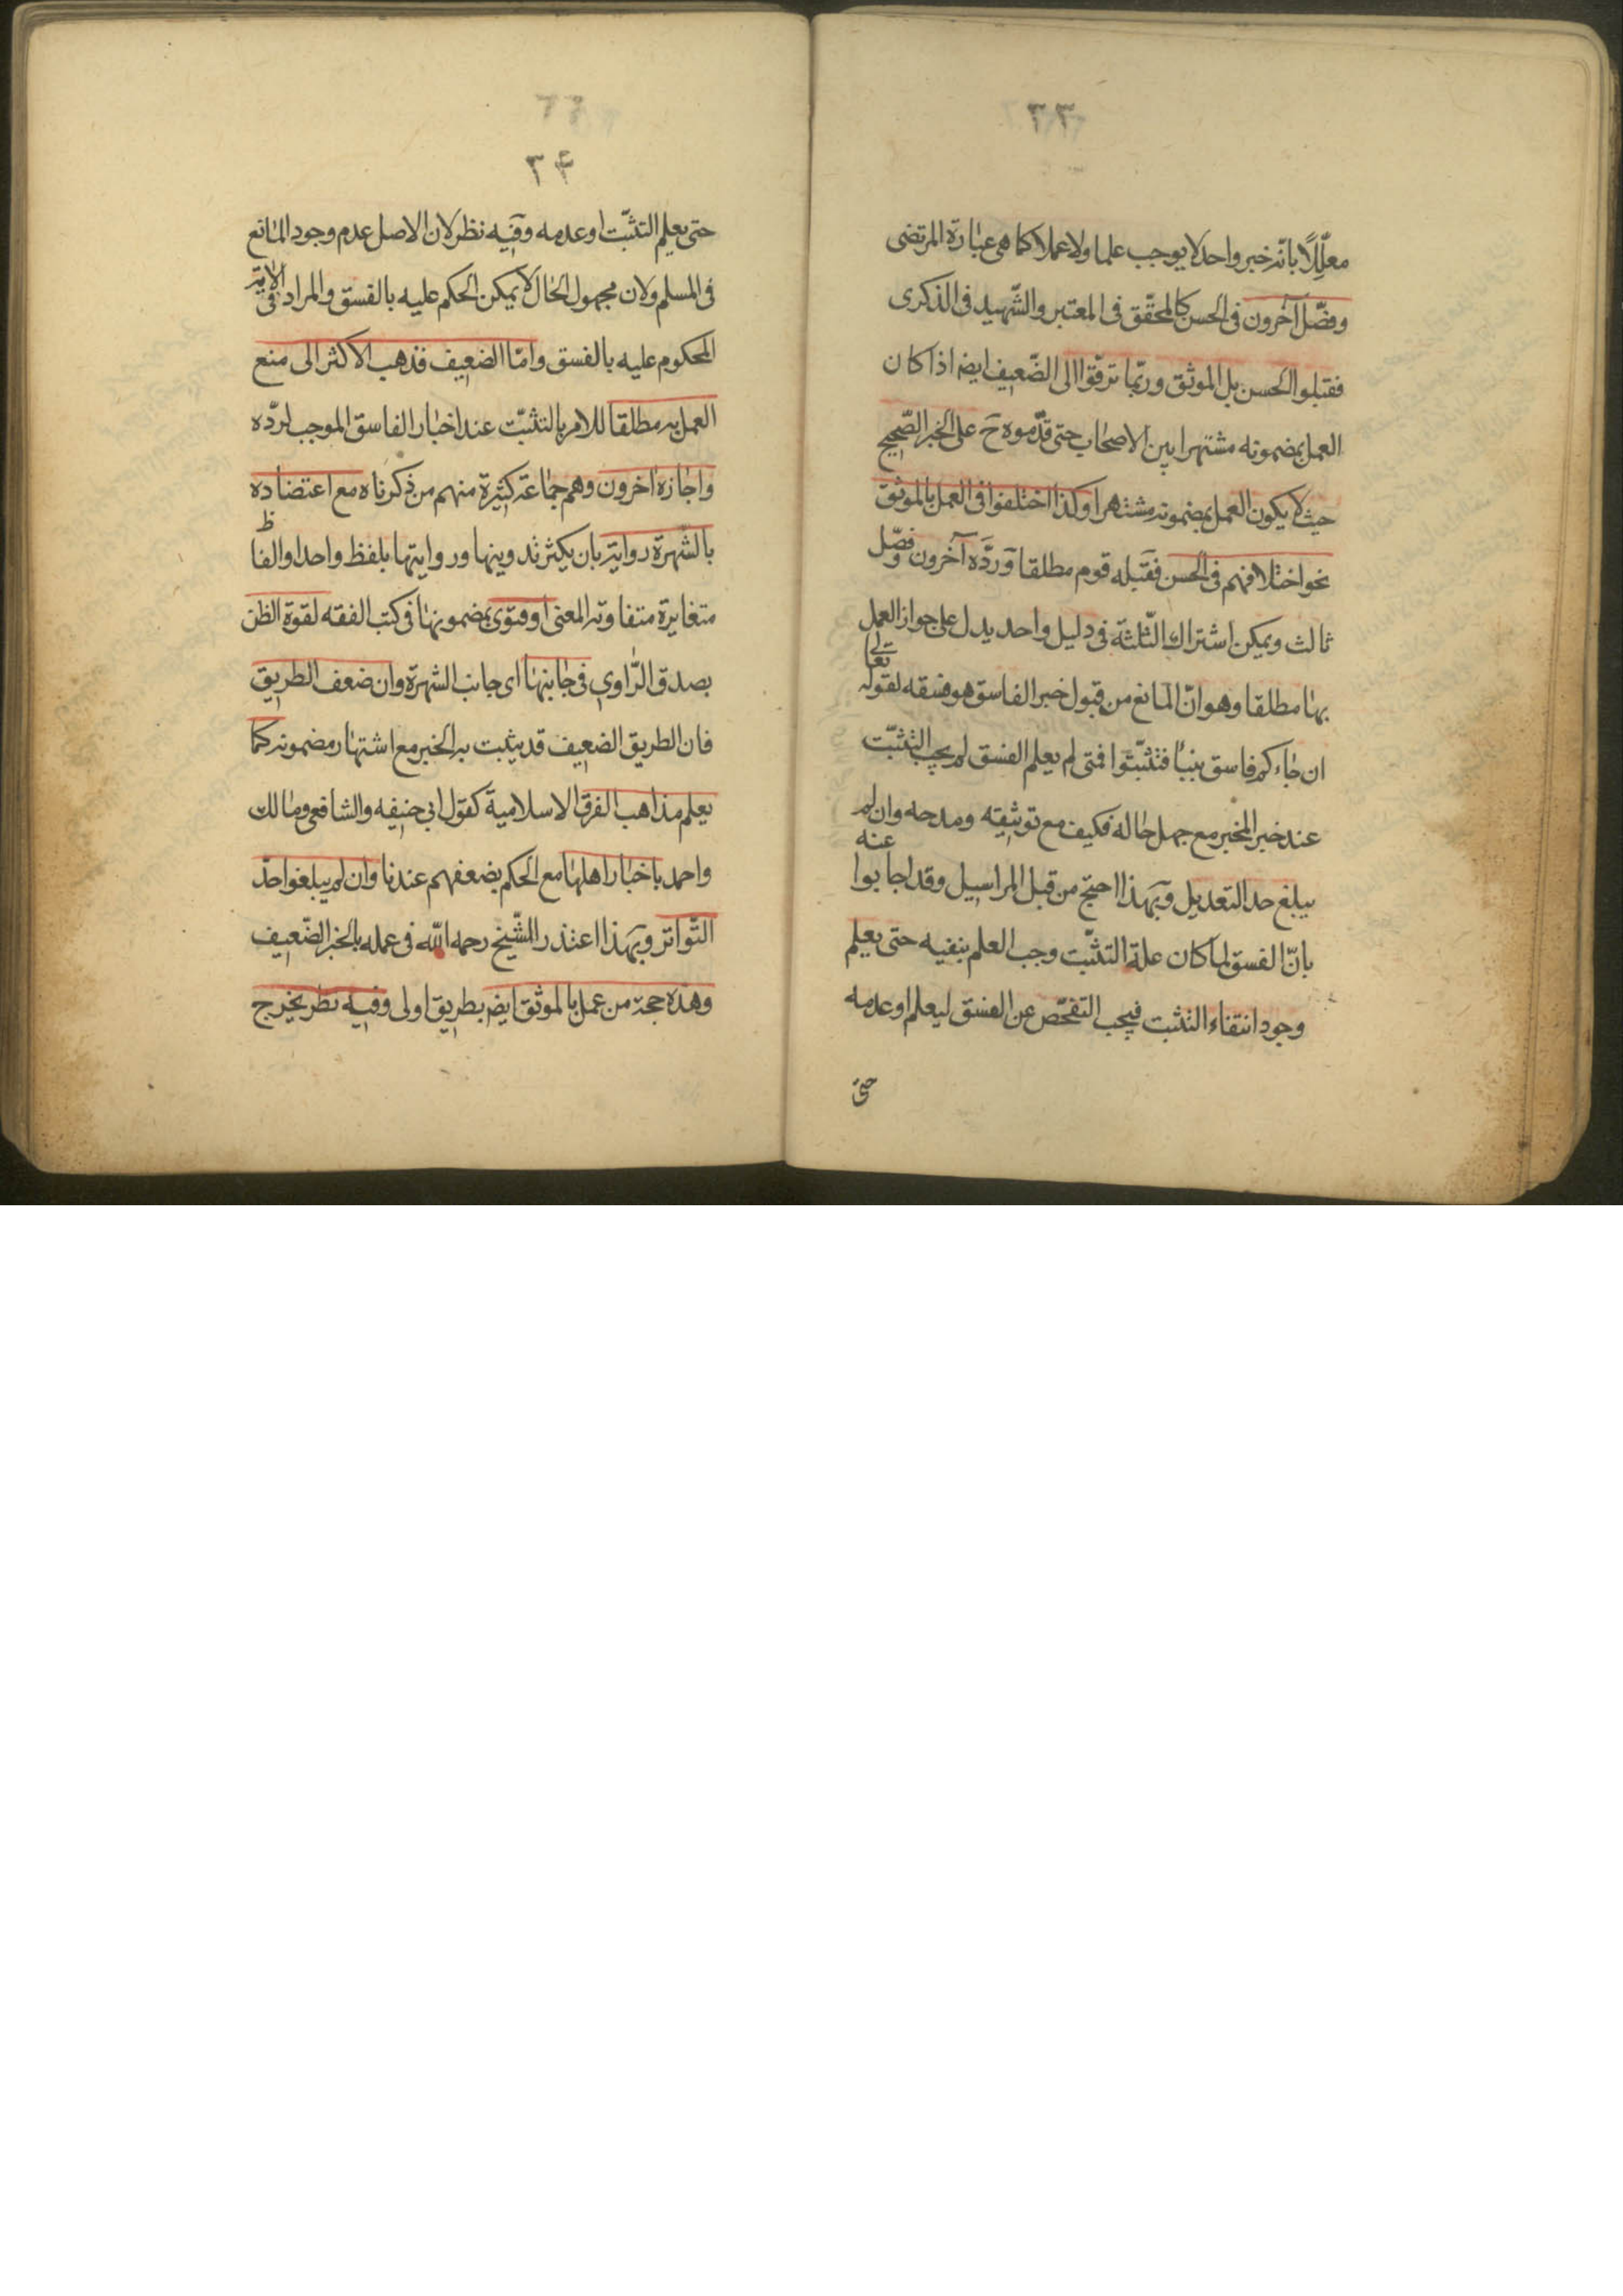 ٣٣
معلّلًا بانّه خبر واحد لا يوجب علما ولا عملا كما هى عبارة المرتضى
وفصّل آخرون فى الحسن كالمحقّق فى المعتبر والشّهيد فى الذكرى
فقبلوا الحسن بل الموثق وربّما ترقّوا الى الضّعيف ايضا اذا كان
العمل بمضمونه مشتهرا بين الاصحاب حتى قدّموه ح على الخبر الصّحيح
حيث لا يكون العمل بمضمونه مشتهرا وكذا اختلفوا فى العمل بالموثق
نحو اختلافهم فى الحسن فقبله قوم مطلقا وردّه آخرون وفصّل
ثالث ويمكن اشتراك الثّلثة فى دليل واحد يدل على جواز العمل
بها مطلقا وهو انّ المانع من قبول خبر الفاسق هو فسقه لقوله تعالى
ان جاءكم فاسق بنبأ فتثبّتوا فمتى لم يعلم الفسق لم يجب التثبّت
عند خبر المخبر مع جهل حاله فكيف مع توثيقه ومدحه وان لم
يبلغ حد التعديل وبهذا احتج من قبل المراسيل وقد اجابوا عنه
بانّ الفسق لما كان علة التثبّت وجب العلم بنفيه حتى يعلم
وجود انتفاء التثبت فيجب التفحّص عن الفسق ليعلم او عدمه
حتى
٣۴
حتى يعلم التثبّت او عدمه وفيه نظر لان الاصل عدم وجود المانع
فى المسلم ولان مجهول الحال لا يمكن الحكم عليه بالفسق والمراد فى الاية
المحكوم عليه بالفسق وامّا الضعيف فذهب الاكثر الى منع
العمل به مطلقا للامر بالتثبّت عند اخبار الفاسق الموجب لردّه
واجازه اخرون وهم جماعة كثيرة منهم من ذكرناه مع اعتضاده
بالشّهرة رواية بان يكثر تدوينها وروايتها بلفظ واحد او الفاظ
متغايرة متقاوبة المعنى او فتوى بمضمونها فى كتب الفقه لقوة الظن
بصدق الرّاوي فى جانبها اى جانب الشهرة وان ضعف الطريق
فان الطريق الضعيف قد يثبت به الخبر مع اشتهار مضمونه كما
يعلم مذاهب الفرق الاسلامية كقول ابى حنيفه والشافعى ومالك
واحمد باخبار اهلها مع الحكم بضعفهم عندنا وان لم يبلغوا حدّ
التّواتر وبهذا اعتذر الشّيخ رحمه اللّه فى عمله بالخبر الضّعيف
وهذه حجة من عمل بالموثق ايضا بطريق اولى وفيه نظر يخرج